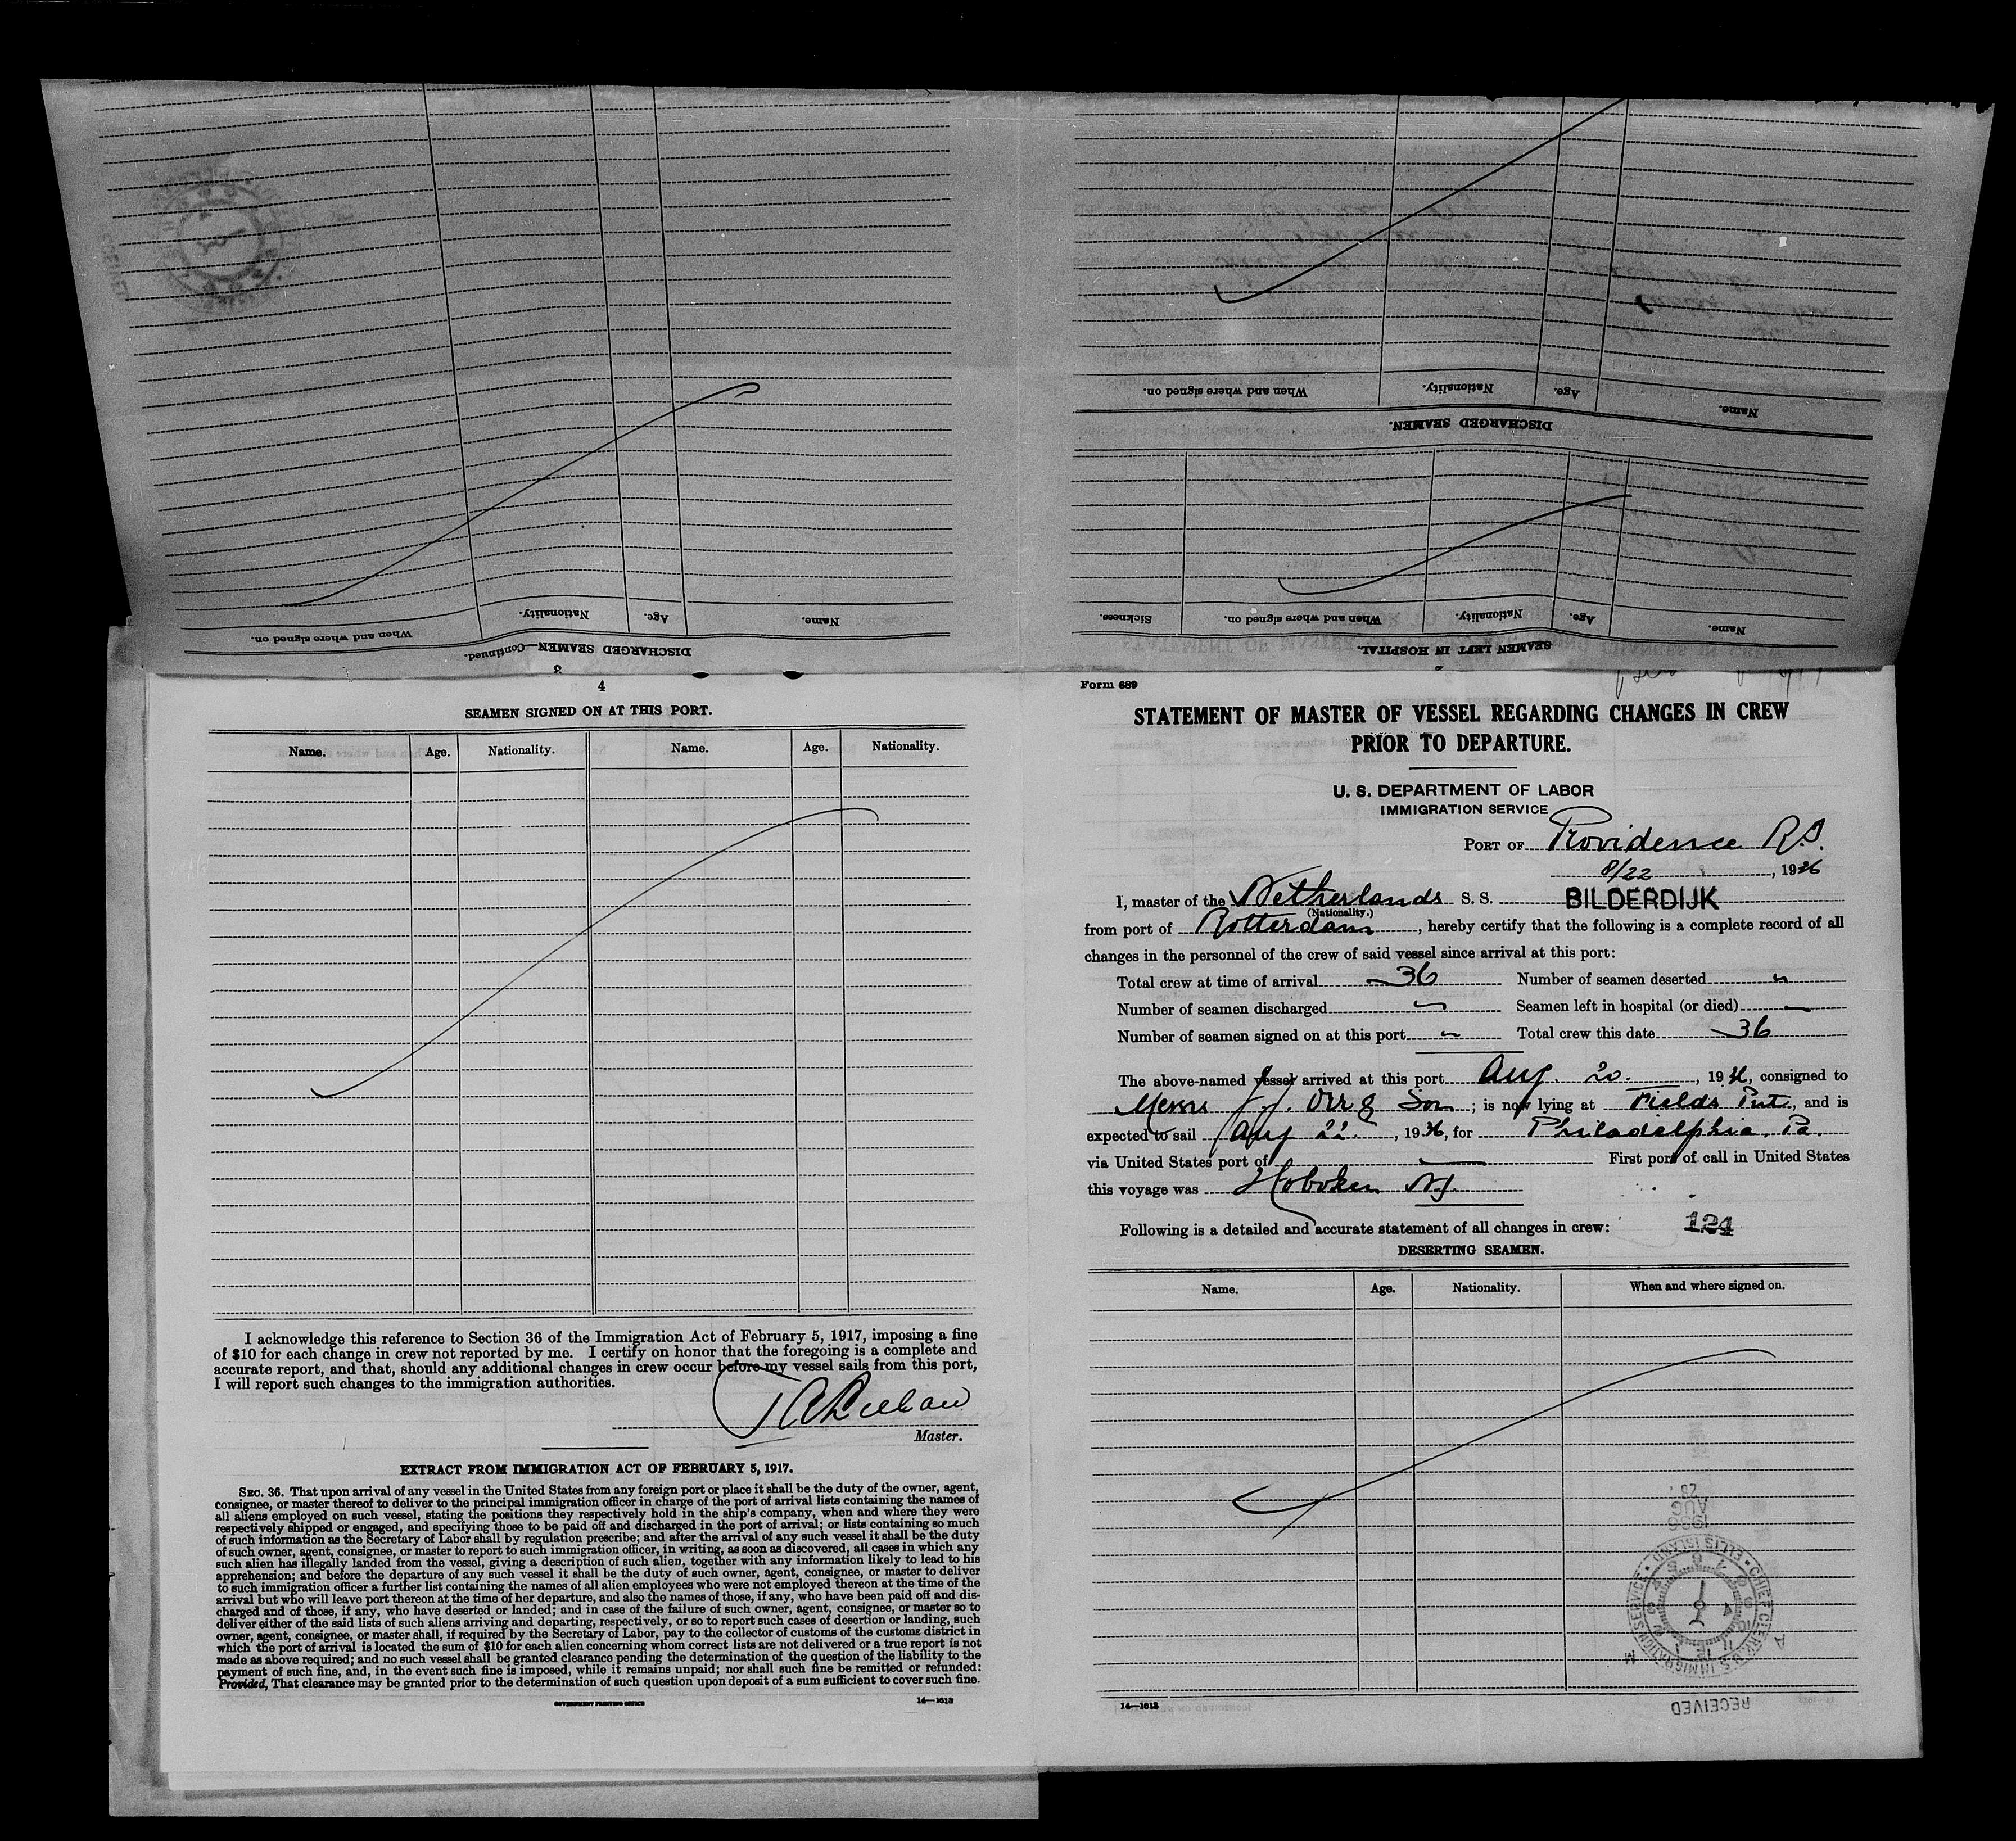 DISCHARGED SEAMEN.
Name. Age. Nationality. When and where signed on.
SEAMEN LEFT IN HOSPITAL.
Name. Age. Nationality. When and where signed on. Sickness.
3
DISCHARGED SEAMEN—Continued.
Name. Age. Nationality. When and where signed on.
4
SEAMEN SIGNED ON AT THIS PORT.
Name. Age. Nationality. Name. Age. Nationality.
I acknowledge this reference to Section 36 of the Immigration Act of February 5, 1917, imposing a fine
of $10 for each change in crew not reported by me. I certify on honor that the foregoing is a complete and
accurate report, and that, should any additional changes in crew occur before my vessel sails from this port,
I will report such changes to the immigration authorities.
Master.
EXTRACT FROM IMMIGRATION ACT OF FEBRUARY 5, 1917.
SEC. 36. That upon arrival of any vessel in the United States from any foreign port or place it shall be the duty of the owner, agent,
consignee, or master thereof to deliver to the principal immigration officer in charge of the port of arrival lists containing the names of
all aliens employed on such vessel, stating the positions they respectively hold in the ship's company, when and where they were
respectively shipped or engaged, and specifying those to be paid off and discharged in the port of arrival; or lists containing so much
of such information as the Secretary of Labor shall by regulation prescribe; and after the arrival of any such vessel it shall be the duty
of such owner, agent, consignee, or master to report to such immigration officer, in writing, as soon as discovered, all cases in which any
such alien has illegally landed from the vessel, giving a description of such alien, together with any information likely to lead to his
apprehension; and before the departure of any such vessel it shall be the duty of such owner, agent, consignee, or master to deliver
to such immigration officer a further list containing the names of all alien employees who were not employed thereon at the time of the
arrival but who will leave port thereon at the time of her departure, and also the names of those, if any, who have been paid off and dis-
charged and of those, if any, who have deserted or landed; and in case of the failure of such owner, agent, consignee, or master so to
deliver either of the said lists of such aliens arriving and departing, respectively, or so to report such cases of desertion or landing, such
owner, agent, consignee, or master shall, if required by the Secretary of Labor, pay to the collector of customs of the customs district in
which the port of arrival is located the sum of $10 for each alien concerning whom correct lists are not delivered or a true report is not
made as above required; and no such vessel shall be granted clearance pending the determination of the question of the liability to the
payment of such fine, and, in the event such fine is imposed, while it remains unpaid; nor shall such fine be remitted or refunded:
Provided, That clearance may be granted prior to the determination of such question upon deposit of a sum sufficient to cover such fine.
GOVERNMENT PRINTING OFFICE 14—1613
Form 689
STATEMENT OF MASTER OF VESSEL REGARDING CHANGES IN CREW
PRIOR TO DEPARTURE.
U. S. DEPARTMENT OF LABOR
IMMIGRATION SERVICE
PORT OF Providence R.I.
8/22, 1926
I, master of the Netherlands S. S. BILDERDIJK
(Nationality.)
from port of Rotterdam, hereby certify that the following is a complete record of all
changes in the personnel of the crew of said vessel since arrival at this port:
Total crew at time of arrival 36 Number of seamen deserted
Number of seamen discharged Seamen left in hospital (or died)
Number of seamen signed on at this port Total crew this date 36
The above-named vessel arrived at this port Aug. 20., 1926, consigned to
Messrs J. J. Orr & Son; is now lying at Fields Pnt., and is
expected to sail Aug 22., 1926, for Philadelphia. Pa.
via United States port of First port of call in United States
this voyage was Hoboken NJ.
Following is a detailed and accurate statement of all changes in crew: 124
DESERTING SEAMEN.
Name. Age. Nationality. When and where signed on.
1926
AUG
CHIEF CLERK U.S. IMMIGRATION SERVICE • ELLIS ISLAND •
A M
RECEIVED
14—1613